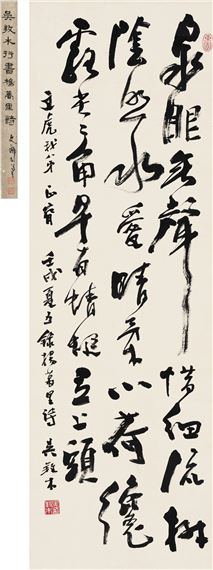 泉眼無聲惜細流樹
陰照水愛晴柔小荷纔
露尖尖角早有蜻蜓立上頭
壬戌夏至錄楊萬里詩 吳䍩木
吳䍩木行書楊萬里詩